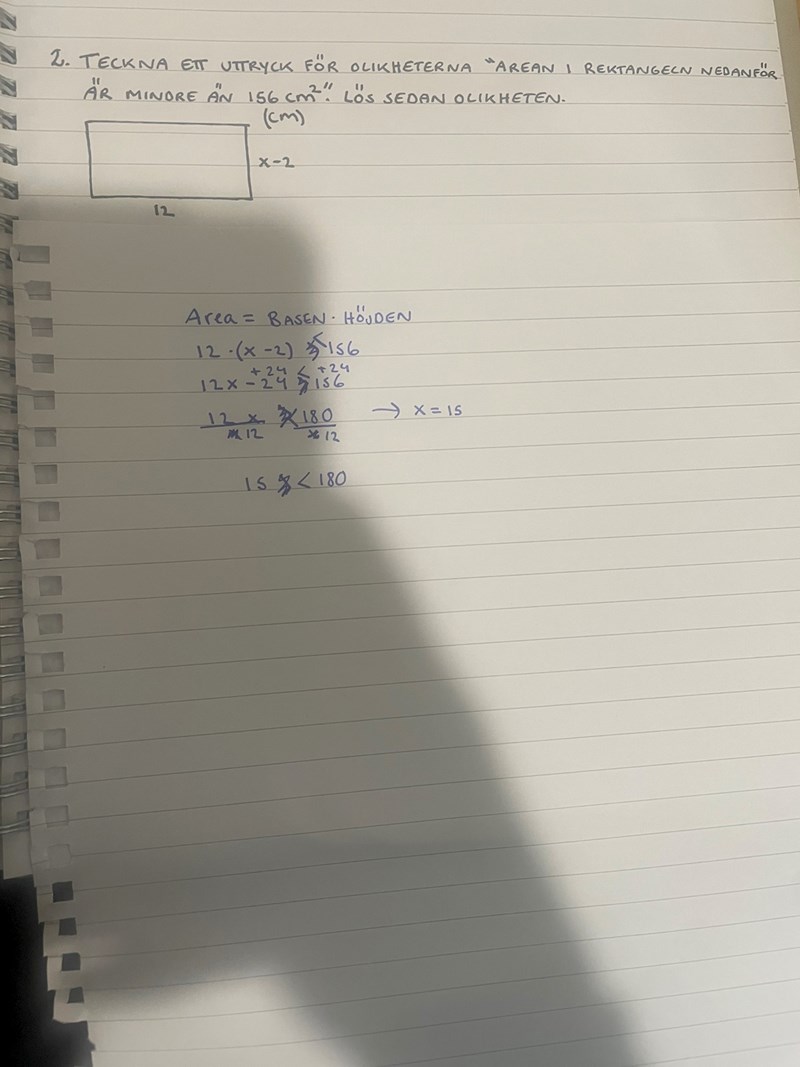 2. TECKNA ETT UTTRYCK FÖR OLIKHETERNA "AREAN I REKTANGELN NEDANFÖR
ÄR MINDRE ÄN 156 cm²". LÖS SEDAN OLIKHETEN.
(cm)
x-2
12
Area = BASEN · HÖJDEN
12 · (x - 2) < 156
+24 < +24
12x - 24 156
12 x 180 → x = 15
12 12
15 < 180